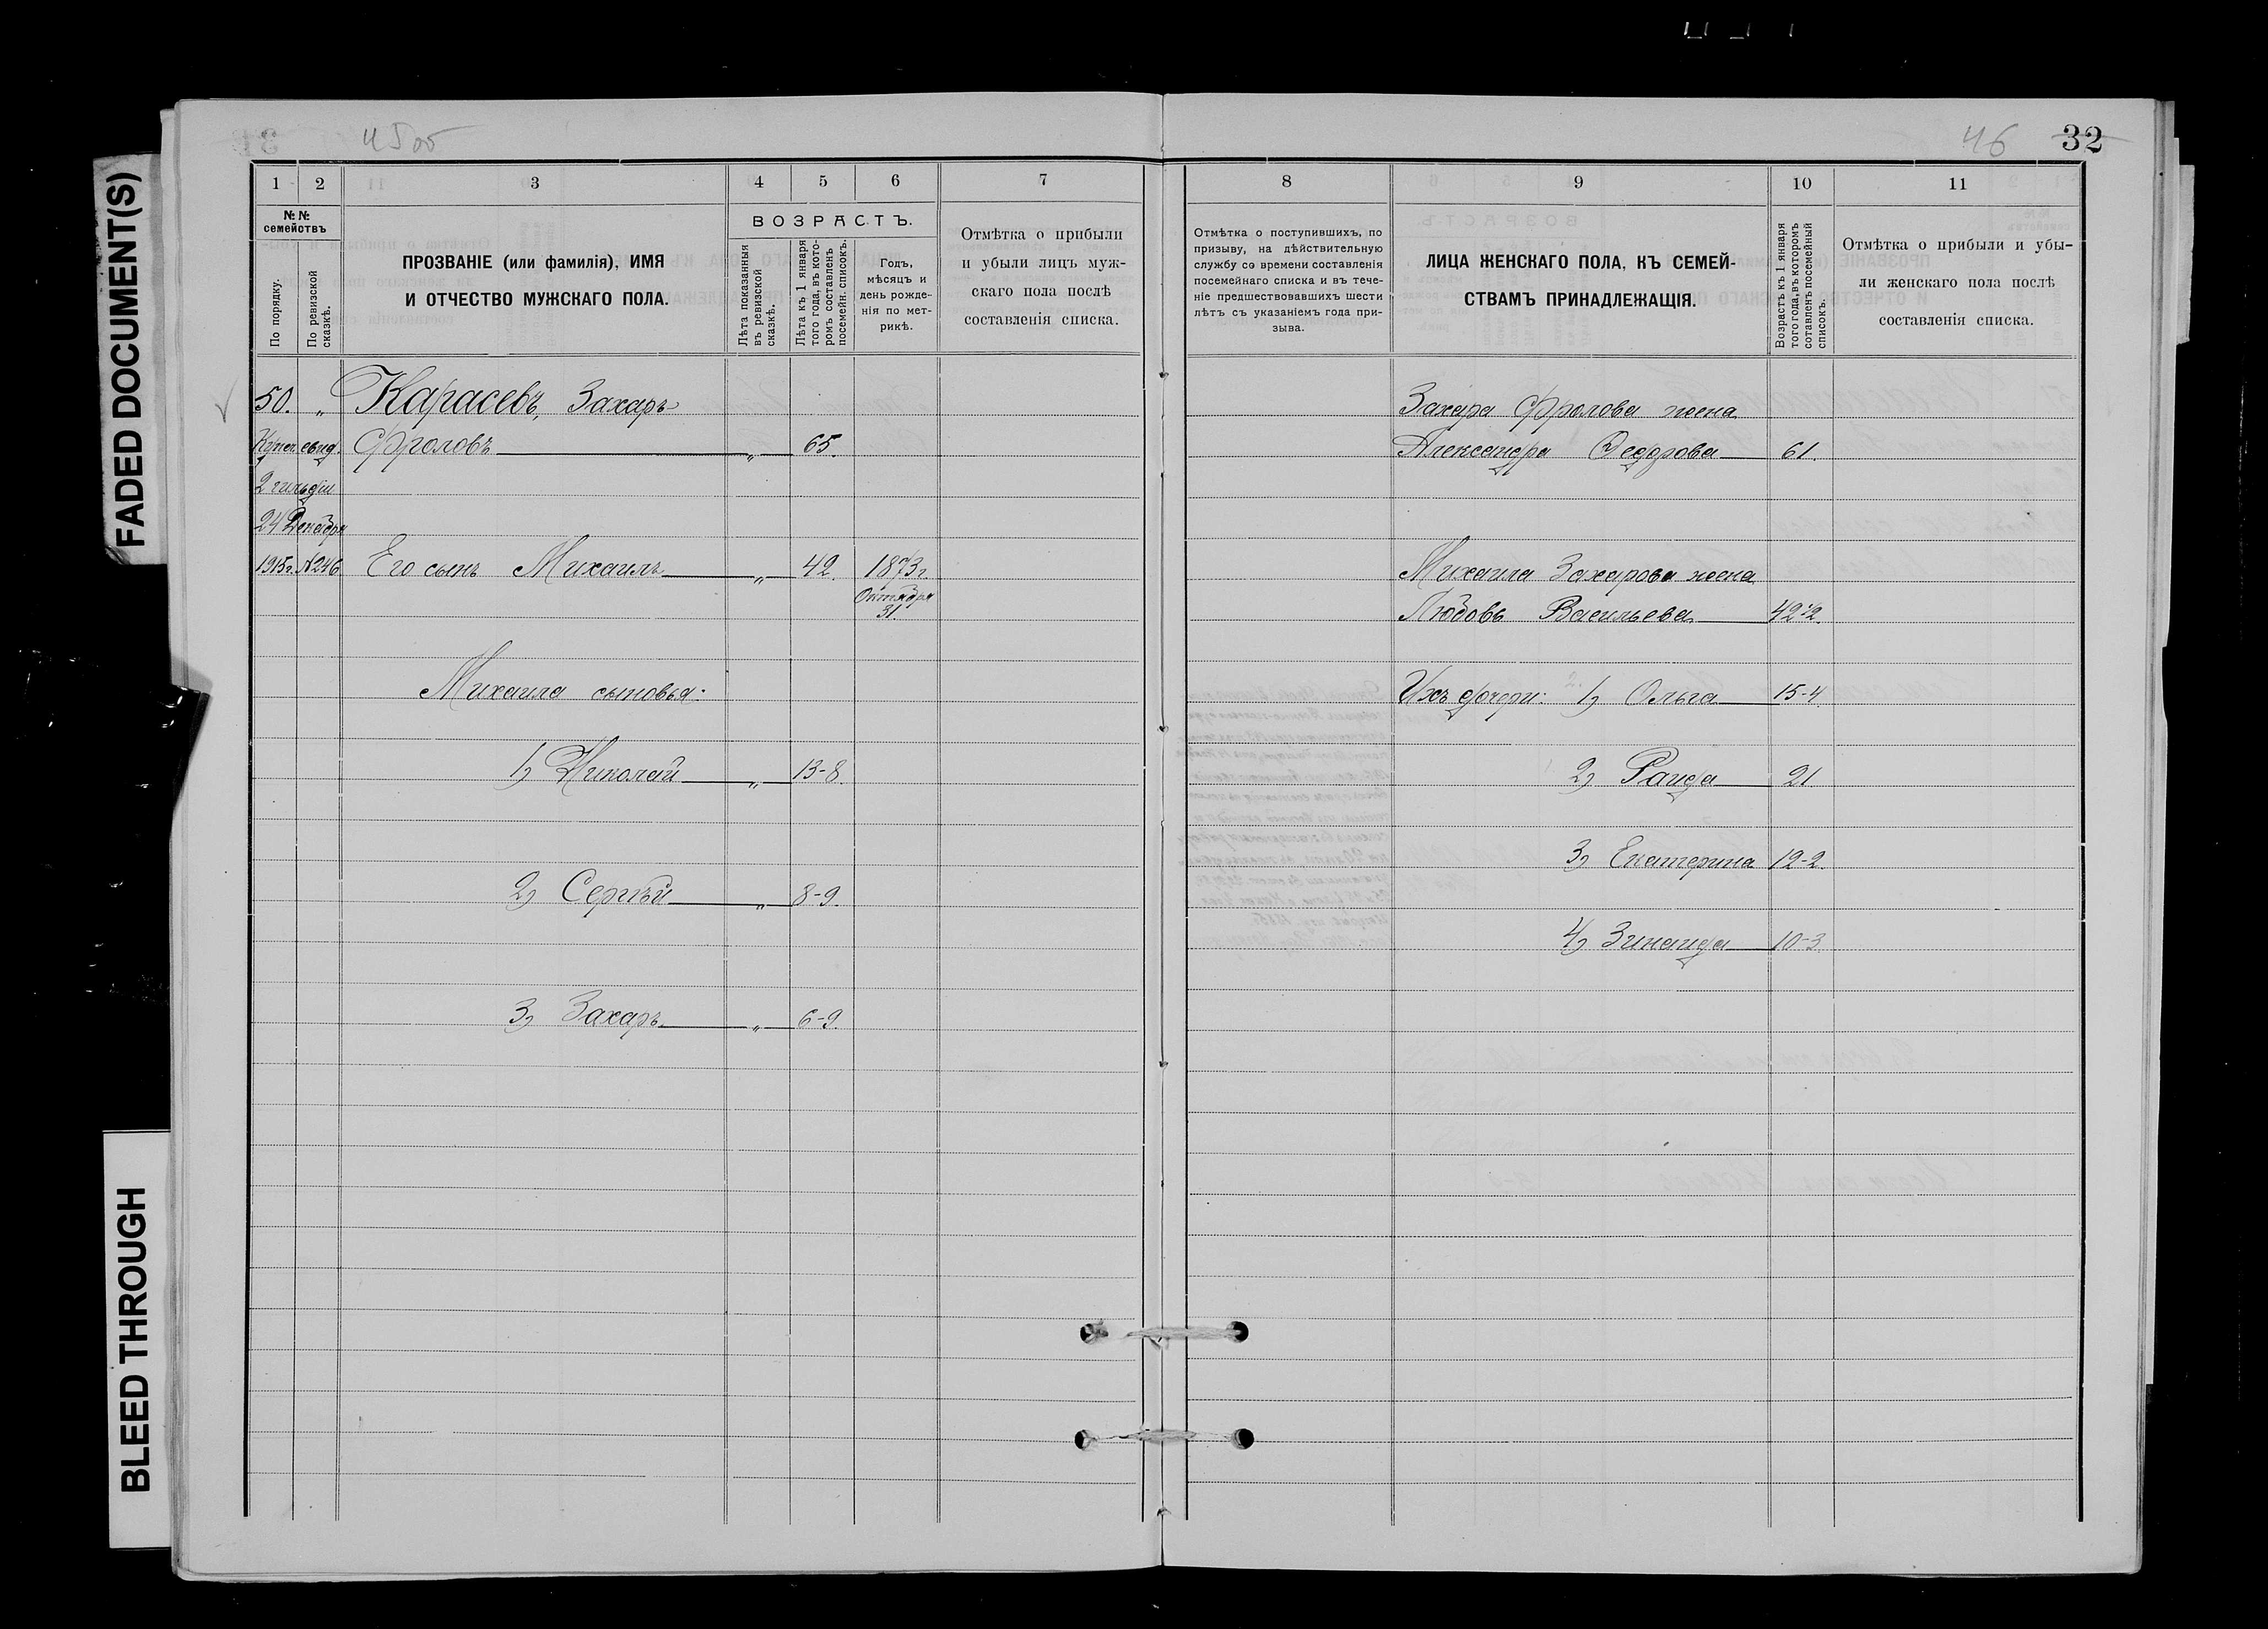 FADED DOCUMENT(S)
BLEED THROUGH
45об
46 32
1 2 3 4 5 6 7
№№ семействъ
По порядку.
По ревизской сказкѣ.
ПРОЗВАНІЕ (или фамилія), ИМЯ
И ОТЧЕСТВО МУЖСКАГО ПОЛА.
ВОЗРАСТЪ.
Лѣта показанныя
въ ревизской
сказкѣ.
Лѣта къ 1 января
того года, въ кото-
ромъ составленъ
посемейн. списокъ.
Годъ,
мѣсяцъ и
день рожде-
нія по мет-
рикѣ.
Отмѣтка о прибыли
и убыли лицъ муж-
скаго пола послѣ
составленія списка.
50. „ Карасевъ, Захаръ
Купеч. свид. Фроловъ „ 65.
2 гильдіи
24 Декабря
1915г. №246 Его сынъ Михаилъ „ 42. 1873г.
Октября
31.
Михаила сыновья:
1) Николай „ 13-8.
2) Сергѣй „ 8-9.
3) Захаръ „ 6-9.
8 9 10 11
Отмѣтка о поступившихъ, по
призыву, на дѣйствительную
службу со времени составленія
посемейнаго списка и въ тече-
ніе предшествовавшихъ шести
лѣтъ съ указаніемъ года при-
зыва.
ЛИЦА ЖЕНСКАГО ПОЛА, КЪ СЕМЕЙ-
СТВАМЪ ПРИНАДЛЕЖАЩІЯ.
Возрастъ къ 1 января
того года, въ которомъ
сотавленъ посемейный
списокъ.
Отмѣтка о прибыли и убы-
ли женскаго пола послѣ
составленія списка.
Захара Фролова жена
Александра Федорова 61.
Михаила Захарова жена
Любовь Васильева 42-2.
Ихъ дочери: 1) Ольга 15-4.
2) Раида 21.
3) Екатерина 12-2.
4) Зинаида 10-3.